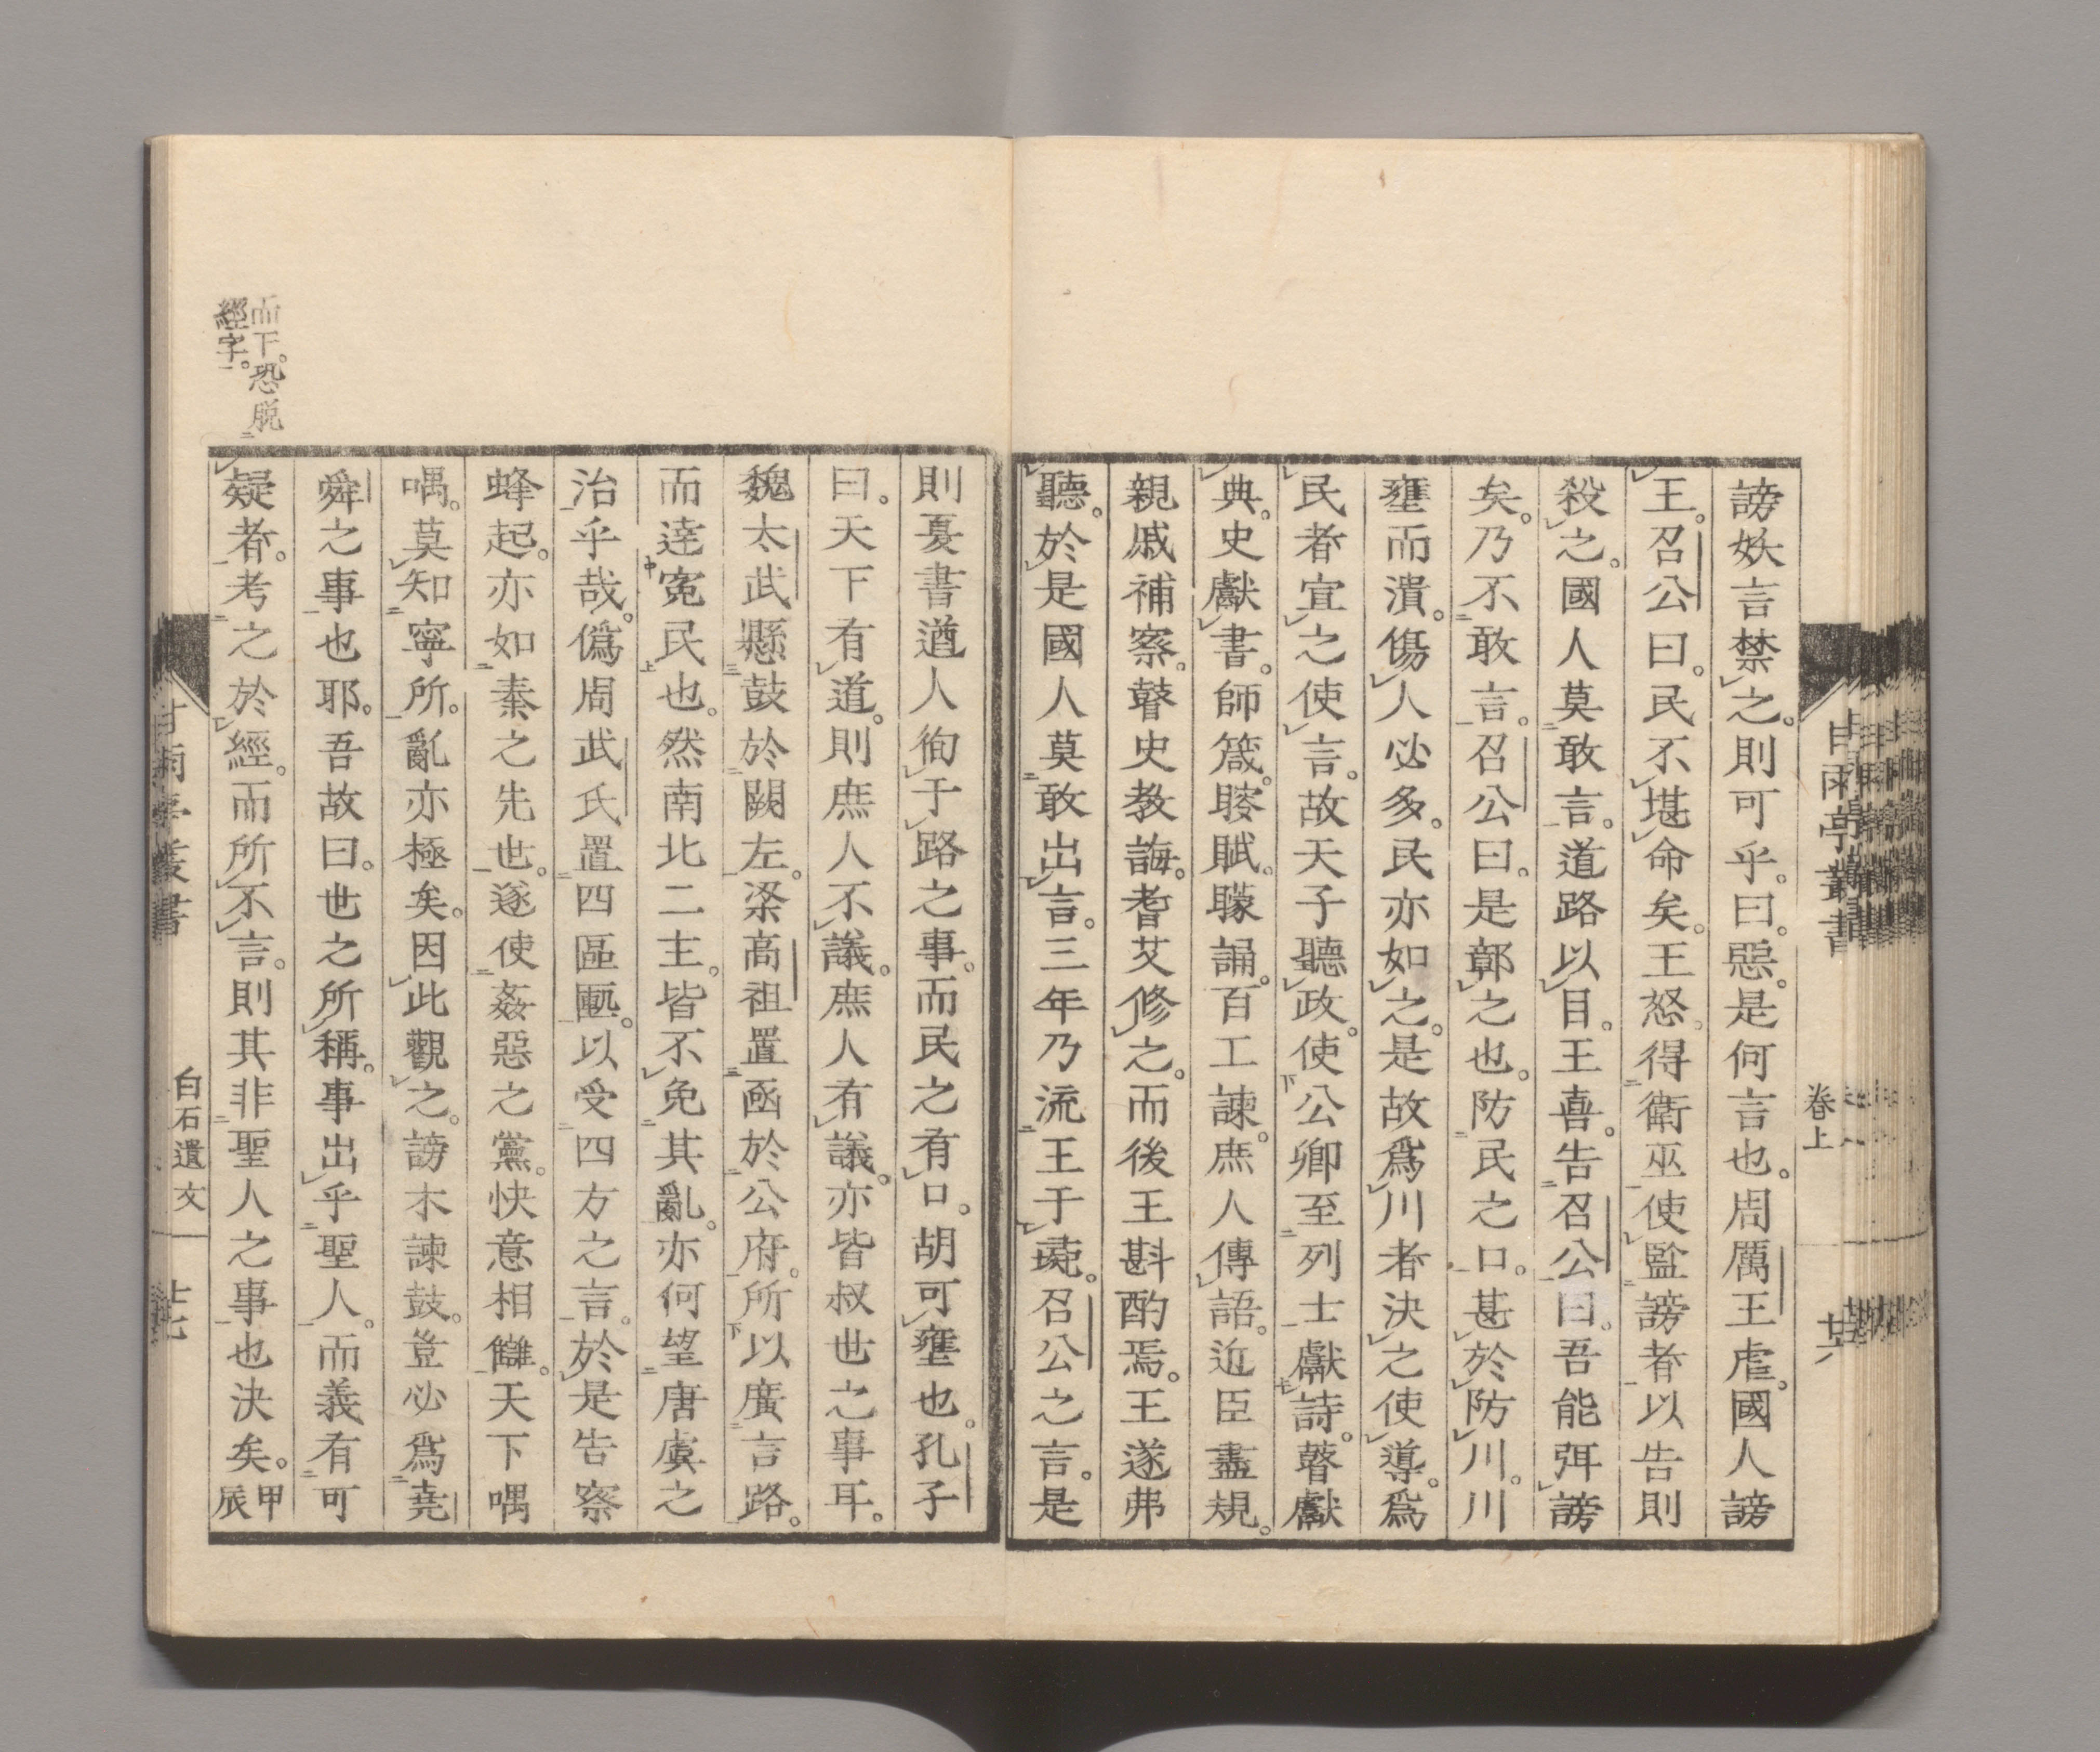 謗妖言禁之。則可乎。曰。惡。是何言也。周厲王虐。國人謗
王。召公曰。民不堪命矣。王怒。得衛巫使監謗者以告則
殺之。國人莫敢言。道路以目。王喜。告召公曰。吾能弭謗
矣。乃不敢言。召公曰。是鄣之也。防民之口。甚於防川。川
壅而潰。傷人必多。民亦如之。是故爲川者決之使導。爲
民者宣之使言。故天子聽政。使公卿至列士獻詩。瞽獻
典。史獻書。師箴。瞍賦。矇誦。百工諫。庶人傳語。近臣盡規。
親戚補察。瞽史教誨。耆艾修之。而後王斟酌焉。王遂弗
聽。於是國人莫敢出言。三年乃流王于彘。召公之言。是
甘雨亭叢書
卷上
廿六
則夏書遒人徇于路之事。而民之有口。胡可壅也。孔子
曰。天下有道。則庶人不議。庶人有議。亦皆叔世之事耳。
魏太武懸鼓於闕左。梁高祖置凾於公府。所以廣言路。
而逹寃民也。然南北二主。皆不免其亂。亦何望唐虞之
治乎哉。僞周武氏置四區匭。以受四方之言。於是告察
蜂起。亦如秦之先也。遂使姦惡之黨。快意相讎。天下喁
喁。莫知寧所。亂亦極矣。因此觀之。謗木諫鼓。豈必爲堯
舜之事也耶。吾故曰。世之所稱。事出乎聖人。而義有可
疑者。考之於經。而所不言。則其非聖人之事也決矣。甲辰
而下。恐脱
經字。
甘雨亭叢書
白石遺文
廿七